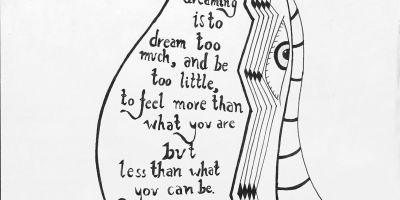 dreaming
is to
dream too
much, and be
too little,
to feel more than
what you are
but
less than what
you can be.